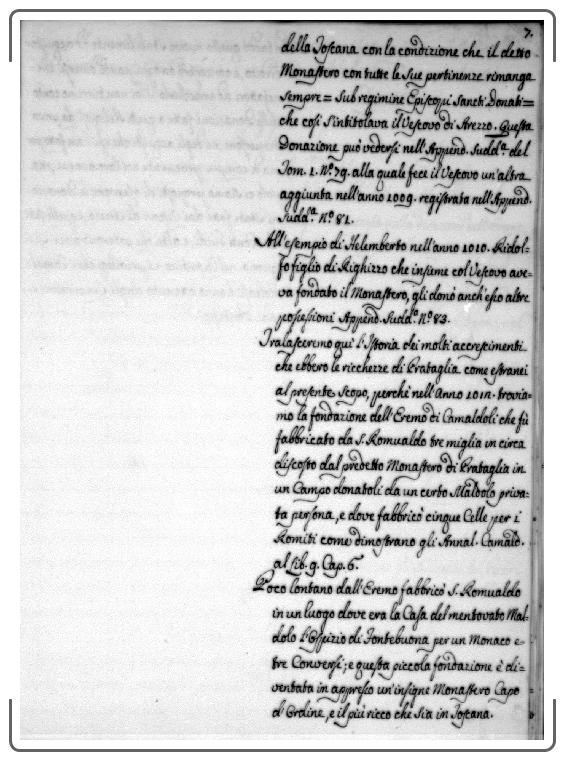 7.
della Toscana con la condizione che il detto
Monastero con tutte le Sue pertinenze rimanga
sempre = Sub regimine Episcopi Sancti Donati =
che così s'intitolava il Vescovo di Arezzo. Questa
Donazione può vedersi nell'Append. Sudd.ª del
Tom. 1. N.º 79. alla quale fece il Vescovo un'altra
aggiunta nell'anno 1009. registrata nell'Append.
Sudd.ª N.º 81.
All'esempio di Helemberto nell'anno 1010. Ridol-
fo figlio di Righizzo che insieme col Vescovo ave-
va fondato il Monastero, gli donò anch'esso altre
possessioni Append. Sudd.ª N.º 83.
Tralasceremo qui l'Istoria dei molti accrescimenti
che ebbero le ricchezze di Prataglia come estranei
al presente Scopo, perché nell'Anno 1012. trovia-
mo la fondazione dell'Eremo di Camaldoli che fù
fabbricato da S. Romualdo tre miglia in circa
discosto dal predetto Monastero di Prataglia in
un Campo donatoli da un certo Maldolo priva-
ta persona, e dove fabbricò cinque Celle per i
Romiti come dimostrano gli Annal. Camald.
al Lib. 9. Cap. 6.
Poco lontano dall'Eremo fabbricò S. Romualdo
in un luogo dove era la Casa del mentovato Mal-
dolo l'Ospizio di Fontebuona per un Monaco e
tre Conversi; e questa piccola fondazione è di-
ventata in appresso un'insigne Monastero Capo
d'Ordine, e il più ricco che Sia in Toscana.